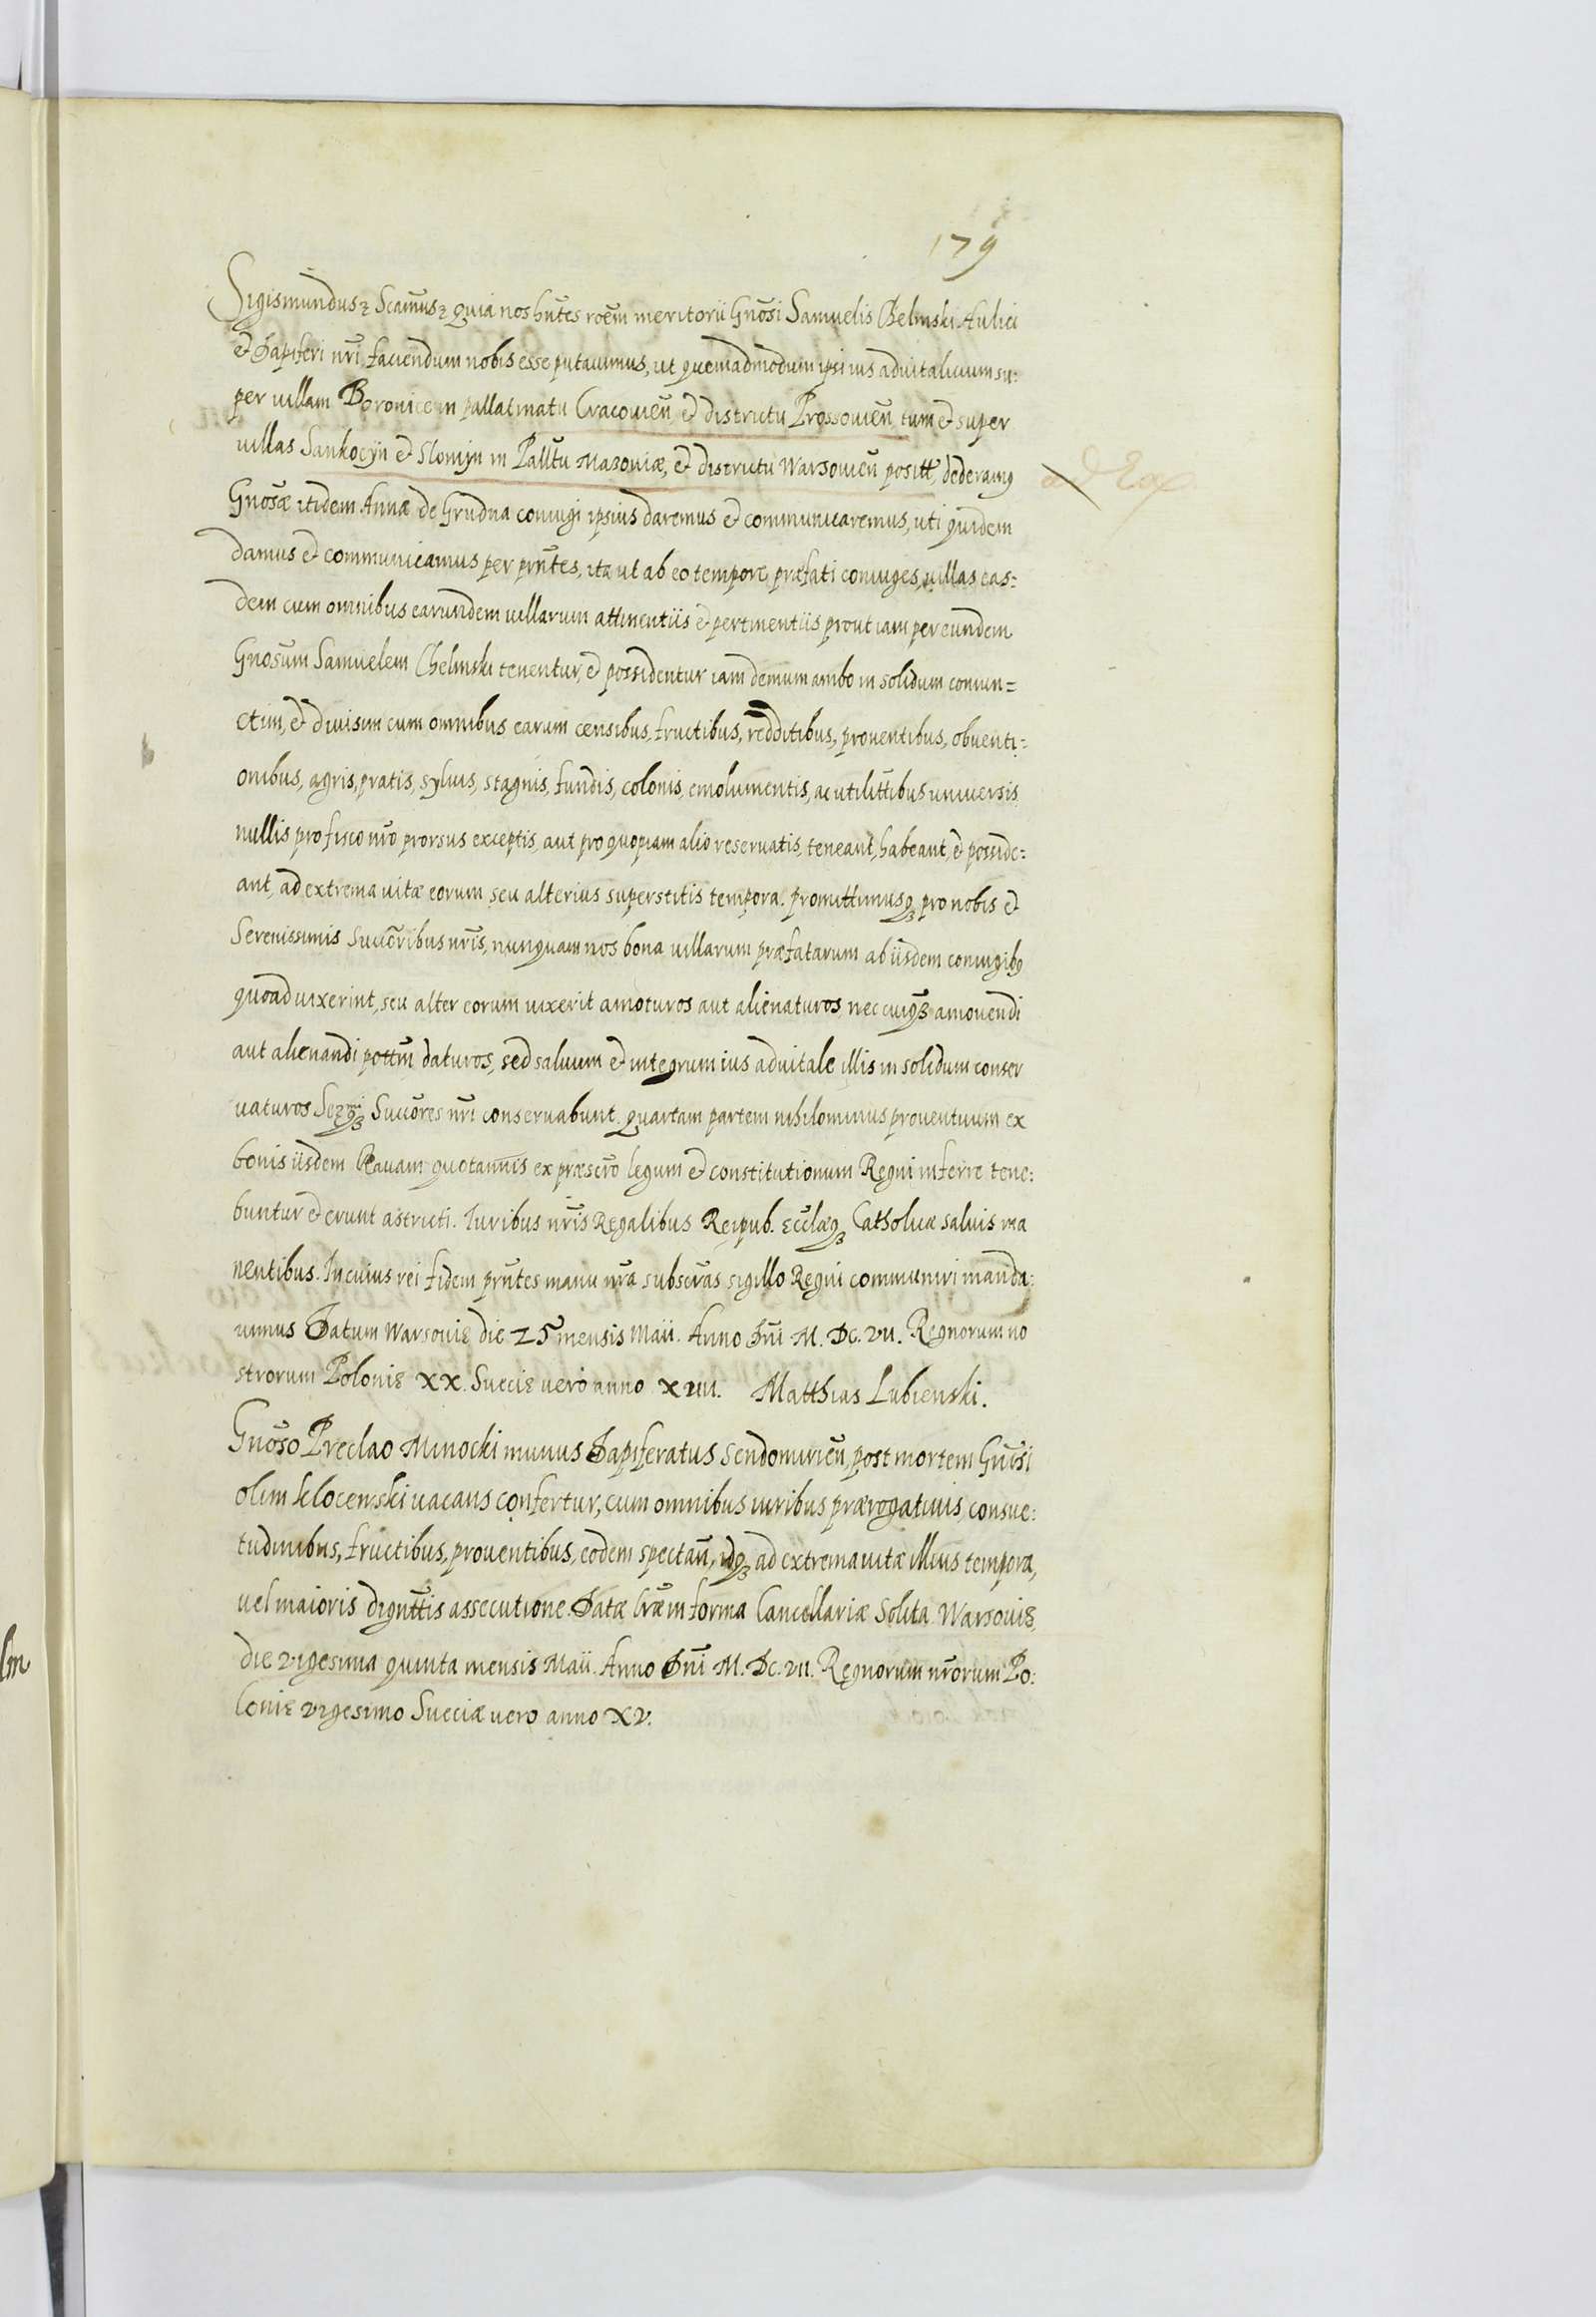 179
Sigismundus ꝛ Scamus ꝛ quia nos hñtes roem meritorū Gnosi Samuelis Chelmski Aulici
et Dapiferi nri, faciendum nobis esse putauimus, ut quemadmodum ipsi ius aduitalicium su:
per uillam Boronice in pallatinatu Cracouieñ et districtu Prossouieñ, tum et super
uillas Sankocyn et Slomyn in Palltu Mazouiæ, et districtu Warsouieñ positt, dederamus
Gnosæ itidem Annæ de Grudna coniugi ipsius daremus et communicaremus, uti quidem
damus et communicamus per prntes, ita ut ab eo tempore, præfati coniuges, uillas eas=
dem cum omnibus earundem uillarum attinentiis et pertinentiis prout iam per eundem
Gnosum Samuelem Chelmski tenentur, et possidentur iam demum ambo in solidum coniun=
ctim, et diuisim cum omnibus earum censibus, fructibus, redditibus, prouentibus, obuenti=
onibus, agris, pratis, syluis, stagnis, fundis, colonis, emolumentis, ac utilittibus uniuersis,
nullis pro fisco nro prorsus exceptis, aut pro quopiam alio reseruatis, teneant, habeant, et posside=
ant, ad extrema uitæ eorum, seu alterius superstitis tempora. promittimusqꝫ pro nobis et
Serenissimis Succoribus nris, nunquam nos bona uillarum præfatarum ab iisdem coniugibꝫ
quoad uixerint, seu alter eorum uixerit amoturos aut alienaturos, nec cuiqꝫ amouendi
aut alienandi pottm daturos, sed saluum et integrum ius aduitale illis in solidum conser
uaturos Sermiqꝫ Succores nri conseruabunt. quartam partem nihilominus prouentuum ex
bonis iisdem Rauam quotannis ex præscro legum et constitutionum Regni inferre tene:
buntur et erunt astricti. Iuribus nris Regalibus Reipub. Ecclæqꝫ Catholicæ saluis ma
nentibus. In cuius rei fidem prntes manu nra subscras sigillo Regni communiri manda:
uimus Datum Warsouiæ die 25 mensis Maii. Anno Dni M. DC. VII. Regnorum no
strorum Poloniæ XX. Sueciæ uero anno XIIII. Matthias Lubienski.
Gnoso Preclao Minocki munus Dapiferatus Sendomirieñ, post mortem Gnosi
olim Klocenski uacans confertur, cum omnibus iuribus prærogatiuis, consue:
tudinibus, fructibus, prouentibus, eodem spectañ, idqꝫ ad extrema uitæ illius tempora,
uel maioris digntttis assecutione. Datæ lræ in forma Cancellariæ Solita Warsouiæ,
die vigesima quinta mensis Maii. Anno Dni M. DC. VII. Regnorum nrorum Po:
loniæ vigesimo Sueciæ uero anno XV.